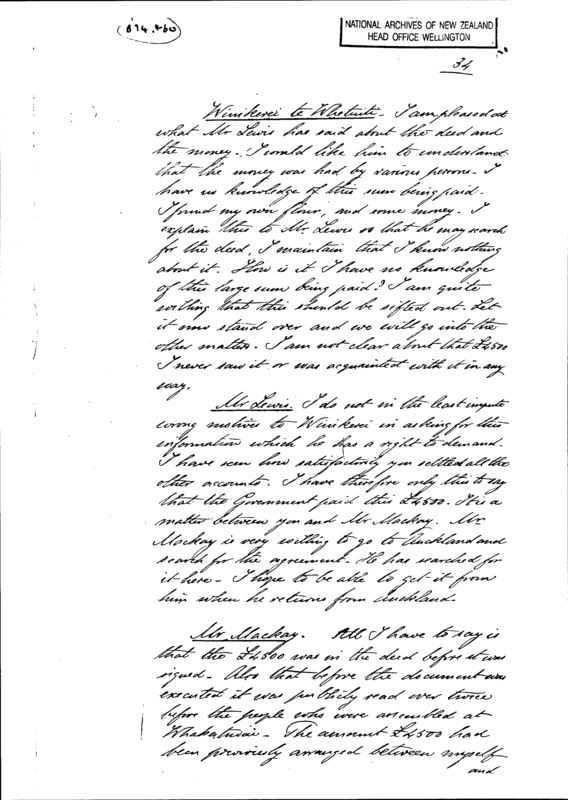 (674.460)
NATIONAL ARCHIVES OF NEW ZEALAND
HEAD OFFICE WELLINGTON
34
Winikerei te Whetuiti - I am pleased at
what Mr Lewis has said about the deed and
the money. I would like him to understand
that the money was had by various persons. I
have no knowledge of this sum being paid.
I found my own flour, and some money. I
explain this to Mr. Lewis so that he may search
for the deed, I maintain that I know nothing
about it. How is it I have no knowledge
of this large sum being paid? I am quite
willing that this should be sifted out. Let
it now stand over and we will go into the
other matters. I am not clear about that £4500
I never saw it or was acquainted with it in any
way.
Mr Lewis. I do not in the least impute
wrong motives to Winikerei in asking for this
information which he has a right to demand.
I have seen how satisfactorily you settled all the
other accounts. I have therefore only this to say
that the Government paid this £4500. It is a
matter between you and Mr Mackay. Mr.
Mackay is very willing to go to Auckland and
search for the agreement. He has searched for
it here - I hope to be able to get it from
him when he returns from Auckland.
Mr Mackay. All I have to say is
that the £4500 was in the deed before it was
signed. Also that before the document was
executed it was publicly read over twice
before the people who were assembled at
The amount £4500 had
been previously arranged between myself
and